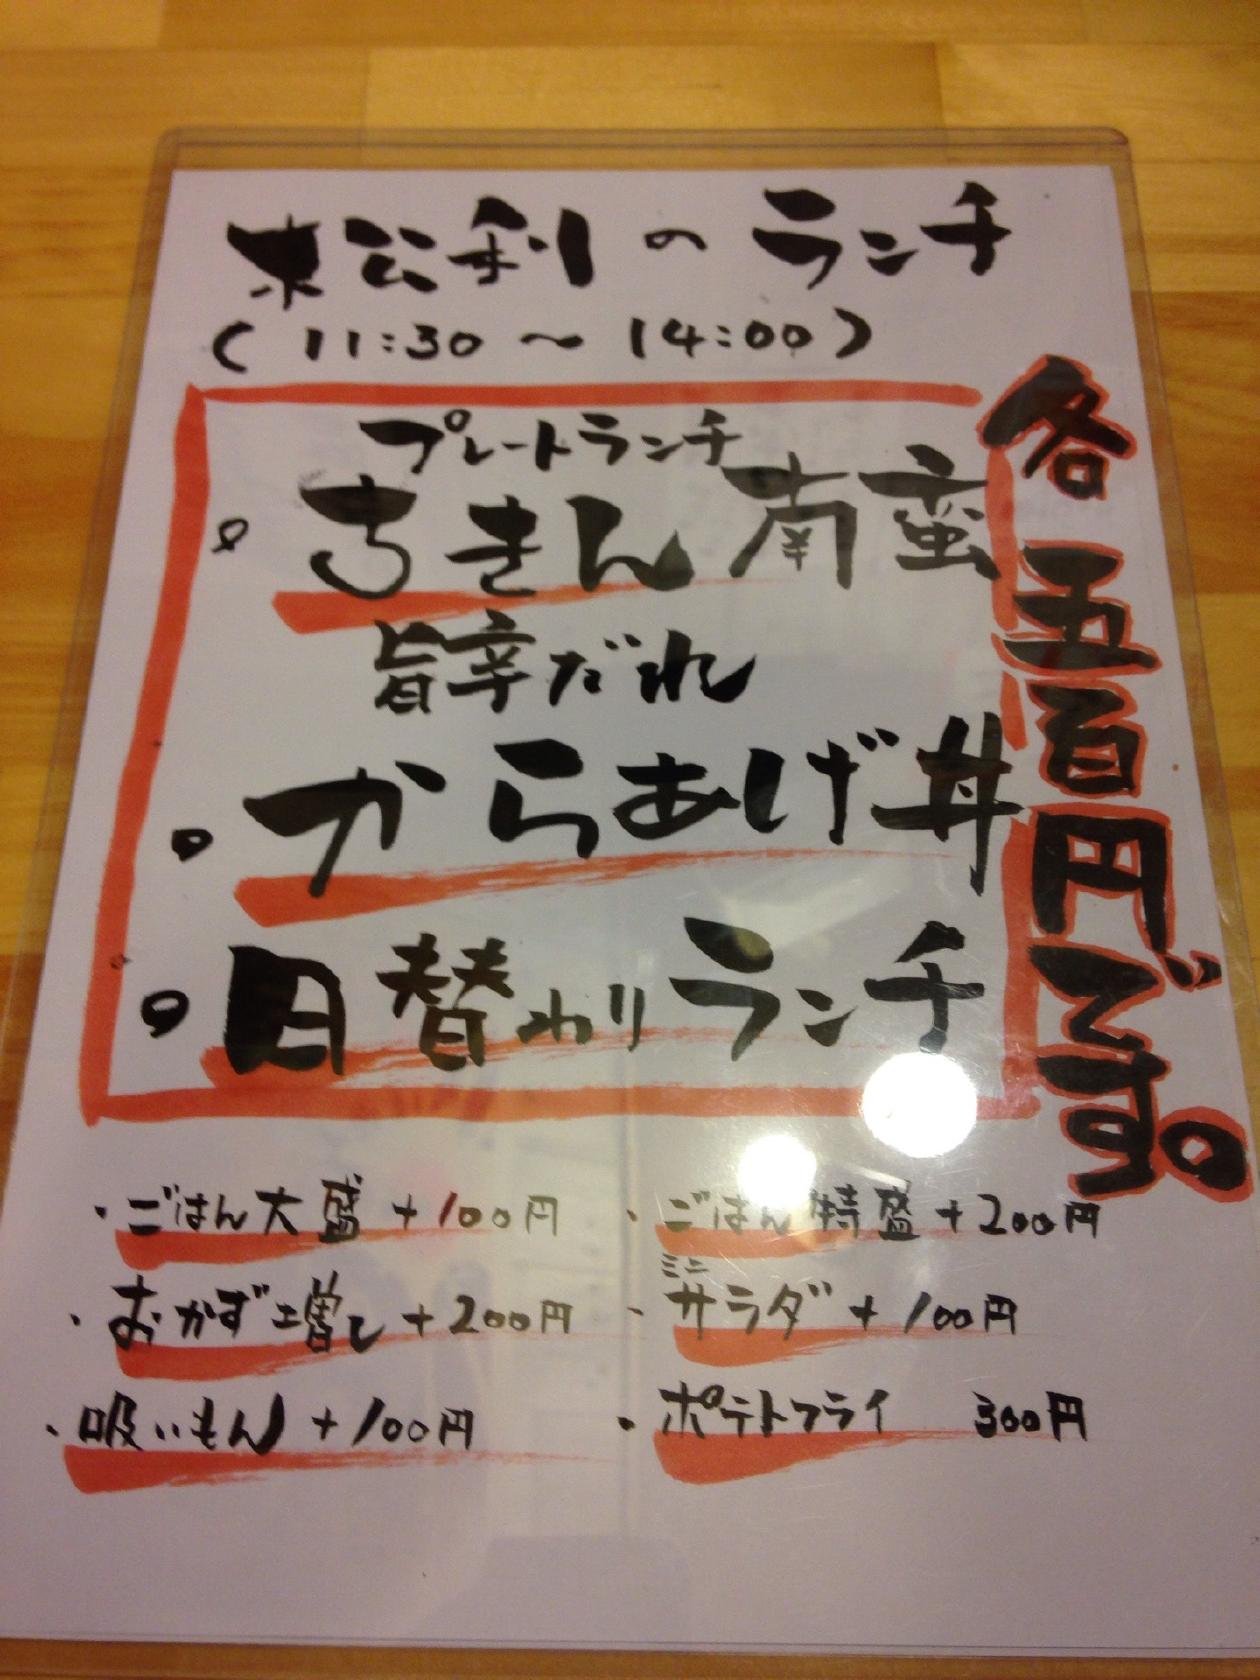 末松利のランチ
(11:30～14:00)
プレートランチ
・ちきん南蛮
旨辛だれ
・からあげ丼
・日替わりランチ
各五百円です。
・ごはん大盛+100円
・ごはん特盛+200円
・おかず増し+200円
・ミニサラダ+100円
・吸いもん+100円
・ポテトフライ 300円